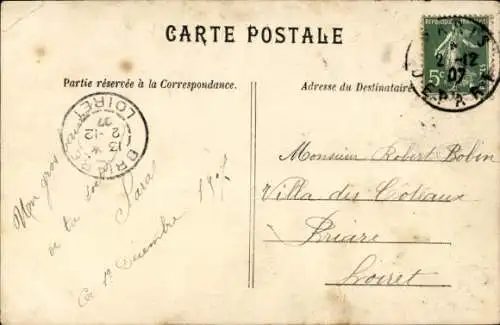 CARTE POSTALE
Partie réservée à la Correspondance.
Adresse du Destinataire
RÉPUBLIQUE FRANÇAISE
5c
PARIS
2 -12
07
DÉPART
BRIARE
LOIRET
13
2 -12
07
Monsieur Robert Bobin
Villa des Coteaux
Briare
Loiret
Mon gros
de ta
Sara
Ce 1er Décembre 1907